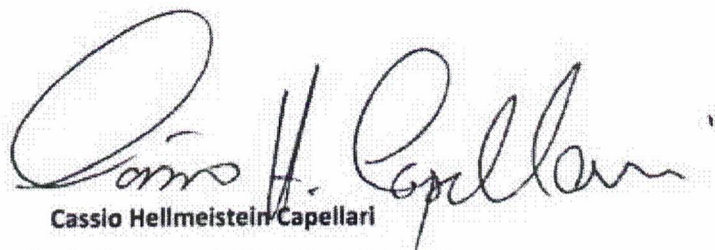 Cassio H. Capellari
Cassio Hellmeistein Capellari